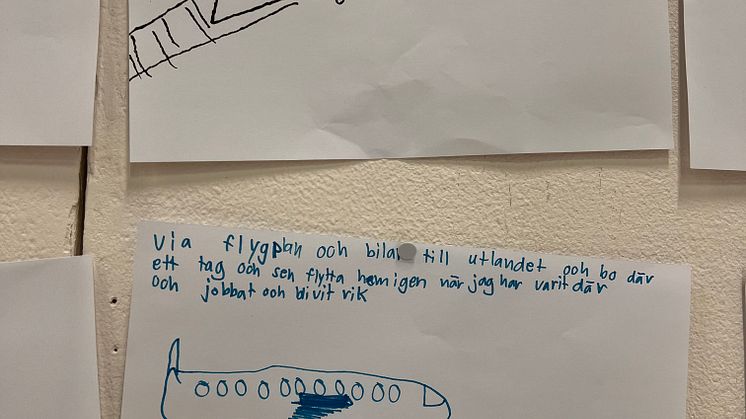 via flygplan och bilar till utlandet och bo där
ett tag och sen flytta hemigen när jag har varit där
och jobbat och blivit rik